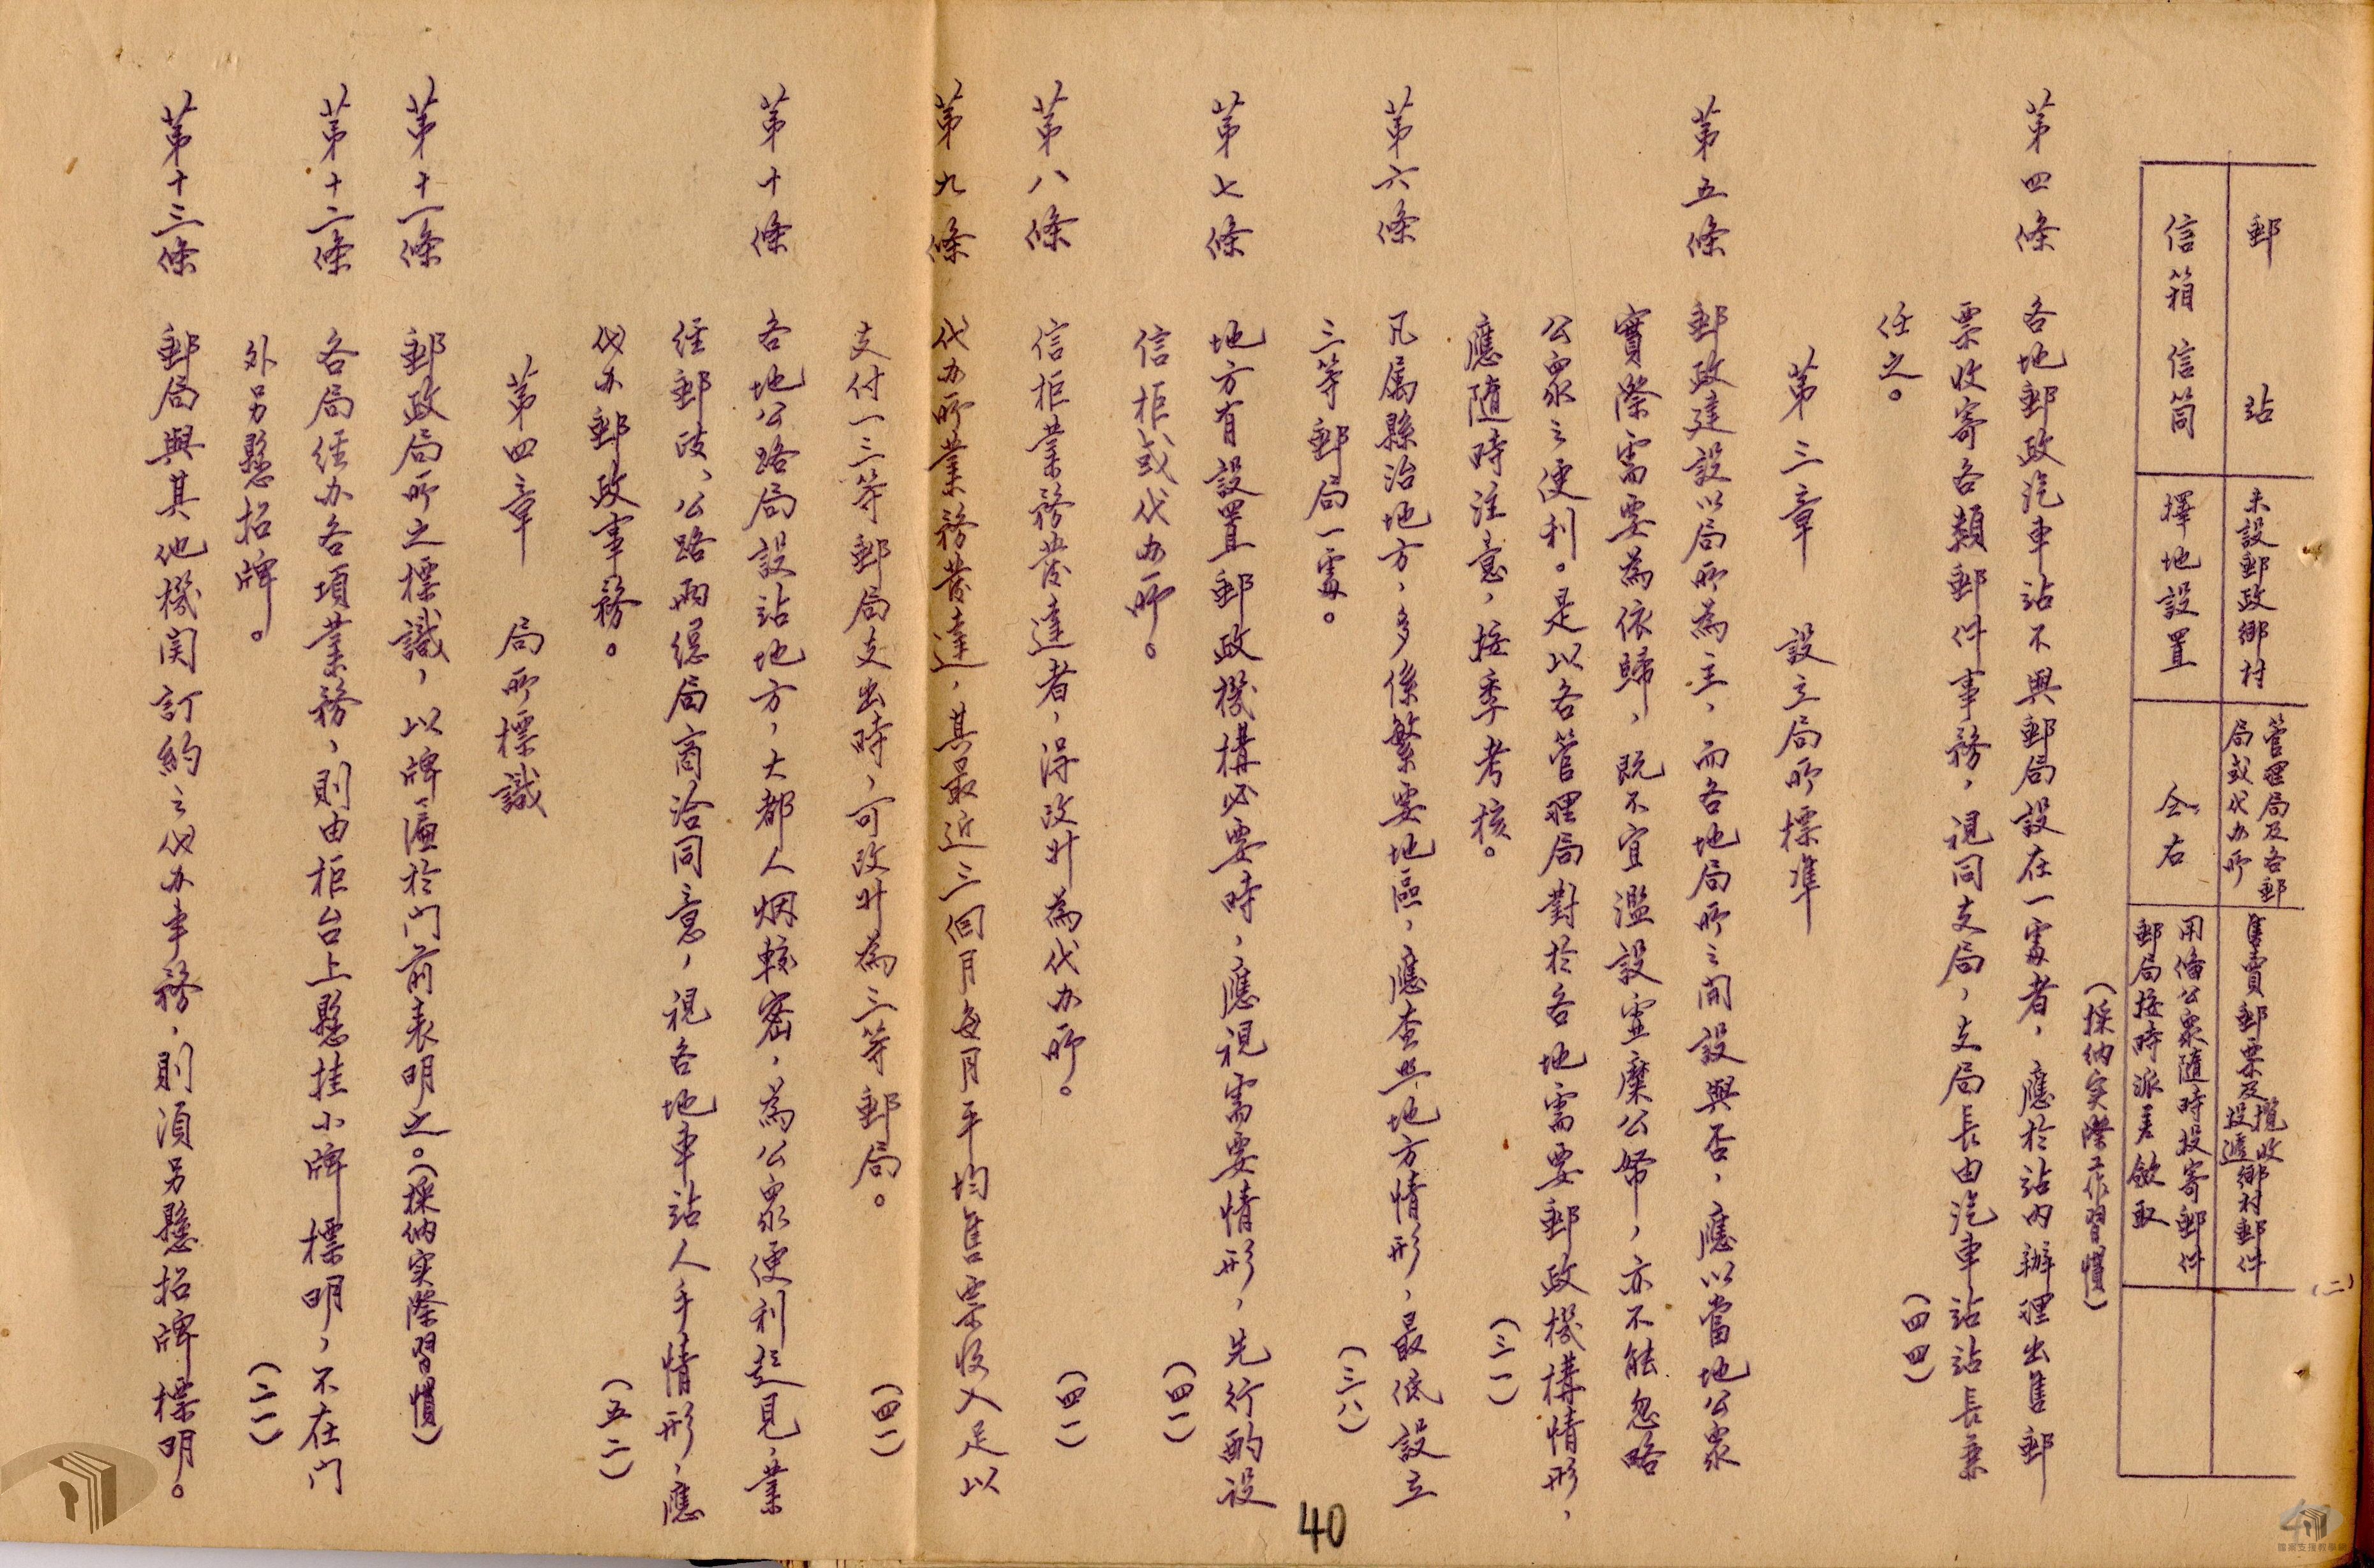 (二)
郵站 未設郵政鄉村 管理局及各郵局或代办所 售賣郵票及攬收投遞鄉村郵件
信箱信筒 擇地設置 仝右 用備公眾隨時投寄郵件郵局按時派差斂取
(採纳实際工作習慣)
第四條 各地郵政汽車站不與郵局設在一處者,應於站內辦理出售郵
票收寄各類郵件事務,視同支局,支局長由汽車站站長兼
任之。 (四四)
第三章 設立局所標準
第五條 郵政建設以局所為主,而各地局所之開設與否,應以當地公眾
實際需要為依歸,既不宜濫設虛糜公帑,亦不能忽略
公眾之便利。是以各管理局對於各地需要郵政機構情形,
應隨時注意,按季考核。 (三一)
第六條 凡屬縣治地方,多係繁要地區,應查照地方情形,最低設立
三等郵局一處。 (三八)
第七條 地方有設置郵政機構必要時,應視需要情形,先行酌設
信柜或代办所。 (四一)
第八條 信柜業務發達者,得改升為代办所。 (四一)
第九條 代办所業務發達,其最近三個月每月平均售票收入足以
支付一三等郵局支出時,可改升為三等郵局。 (四一)
第十條 各地公路局設站地方,大都人烟較密,為公眾便利起見,業
经郵政、公路兩總局商洽同意,視各地車站人手情形,應
代办郵政事務。 (五二)
第四章 局所標識
第十一條 郵政局所之標識,以牌匾於门前表明之。(採纳实際習慣)
第十二條 各局经办各項業務,則由柜台上懸挂小牌標明,不在门
外另懸招牌。 (二一)
第十三條 郵局與其他機関訂約之代办事務,則須另懸招牌標明。
40
檔案支援教學網